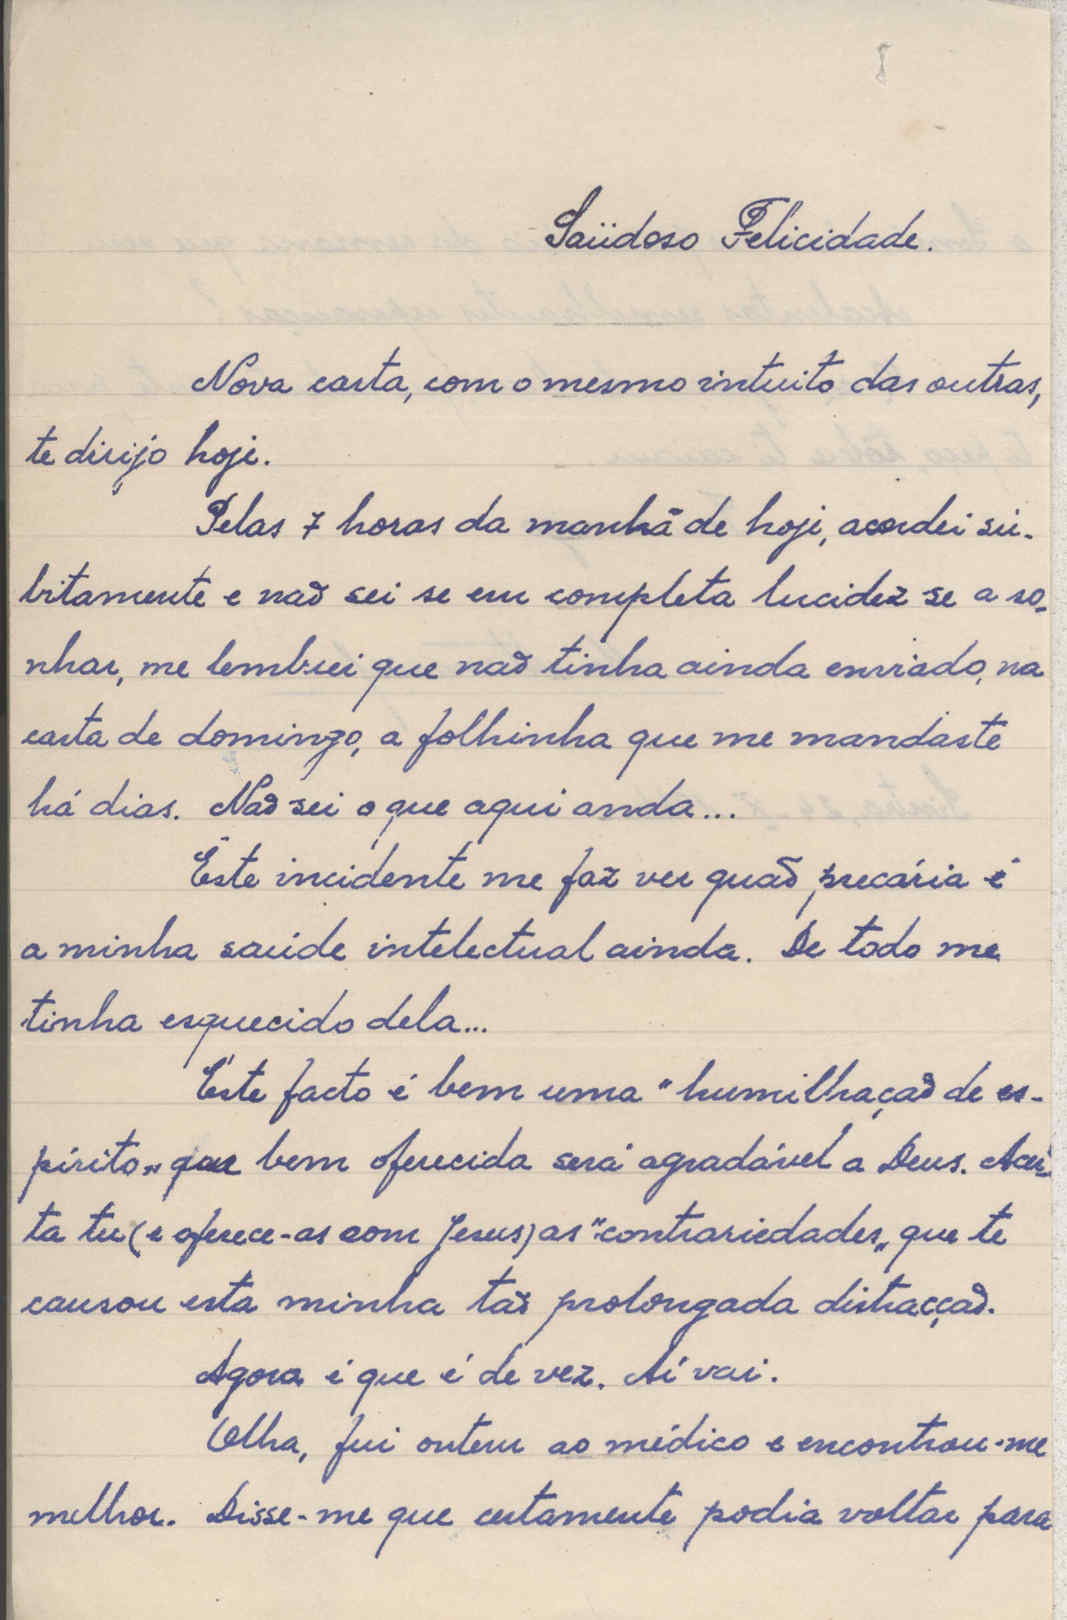 Saüdoso Felicidade.
Nova carta, com o mesmo intuito das outras,
te dirijo hoje.
Pelas 7 horas da manhã de hoje, acordei sú-
bitamente e não sei se em completa lucidez se a so-
nhar, me lembrei que não tinha ainda enviado, na
carta de domingo, a folhinha que me mandaste
há dias. Não sei o que aqui anda...
Êste incidente me faz ver quão precária é
a minha saúde intelectual ainda. De todo me
tinha esquecido dela...
Êste facto é bem uma "humilhação de es-
pírito" que bem oferecida será agradável a Deus. Acei-
ta tu (e oferece-as com Jesus) as "contrariedades" que te
causou esta minha tão prolongada distracção.
Agora é que é de vez. Aí vai.
Olha, fui ontem ao médico e encontrou-me
melhor. Disse-me que certamente podia voltar para